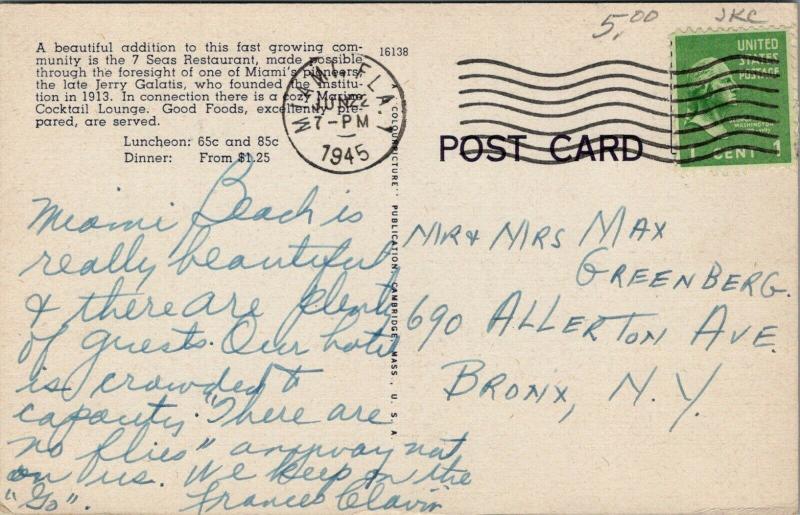 5.00 JKC
A beautiful addition to this fast growing com-
munity is the 7 Seas Restaurant, made possible
through the foresight of one of Miami's pioneers,
the late Jerry Galatis, who founded the institu-
tion in 1913. In connection there is a cozy Marine
Cocktail Lounge. Good Foods, excellently pre-
pared, are served.
Luncheon: 65c and 85c
Dinner: From $1.25
16138
MIAMI, FLA. 7
JUN 22
7-PM
1945
UNITED
STATES
POSTAGE
WASHINGTON
1 CENT 1
POST CARD
A "COLOURPICTURE" PUBLICATION, CAMBRIDGE, MASS., U. S. A
Miami Beach is
really beautiful
& there are plenty
of guests. Our hotel
is crowded to
capacity. "There are
no flies" anyway not
on us. We keep on the
"Go".
Frances Clavin
MR & MRS MAX
GREENBERG.
690 ALLERTON AVE.
BRONX, N.Y.